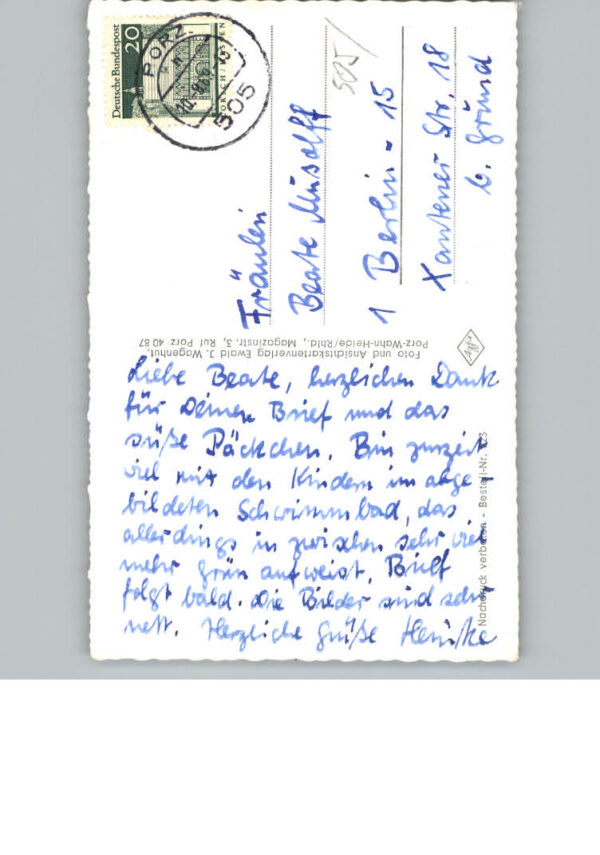 Liebe Beate, herzlichen Dank
für Deinen Brief und das
süße Päckchen. Bin zurzeit
viel mit den Kindern im abge-
bildeten Schwimmbad, das
allerdings inzwischen sehr viel
mehr grün aufweist. Brief
folgt bald. Die Bilder sind sehr
nett. Herzliche Grüße
Fräulein
Beate
1 Berlin - 15
Xantener Str. 18
b. Gründ
Deutsche Bundespost
20
LORSCH/HESSEN
PORZ
505
505
Foto und Ansichtskartenverlag Ewald J. Wagenhut,
Porz-Wahn-Heide/Rhld., Magazinstr. 3, Ruf Porz 40 87
Agfa
Nachdruck verboten - Bestell-Nr.